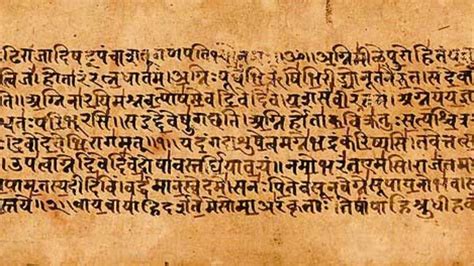 अग्निमीळेपुरोहितंयज्ञ
होतारंरत्नधातमं॥अग्निःपूर्वेभिर्ऋषिभिरीड्योनूतनैरुत।सदेवाँ
॥अग्निनारयिमश्नवत्पोषमेवदिवेदिवे।यशसंवीरवत्तमं॥अग्नेयंयज्ञ
श्वतःपरिभूरसि।सइद्देवेषुगच्छति॥अग्निर्होताकविक्रतुःसत्यश्चित्र
देवोदेवेभिरागमत्॥१॥यदंगदाशुषेत्वमग्नेभद्रंकरिष्यसि।तवेत्तत्स
उपत्वाग्नेदिवेदिवेदोषावस्तर्धियावयं।नमोभरंतएमसि॥राजंतम
पामृतस्यदीदिविं।वर्द्धमानंस्वेदमे॥सनःपितेवसूनवेग्नेसूपायनोभव
स्तये॥२॥वायवायाहिदर्शतेमेसोमाअरंकृताः।तेषांपाहिश्रुधीहवं